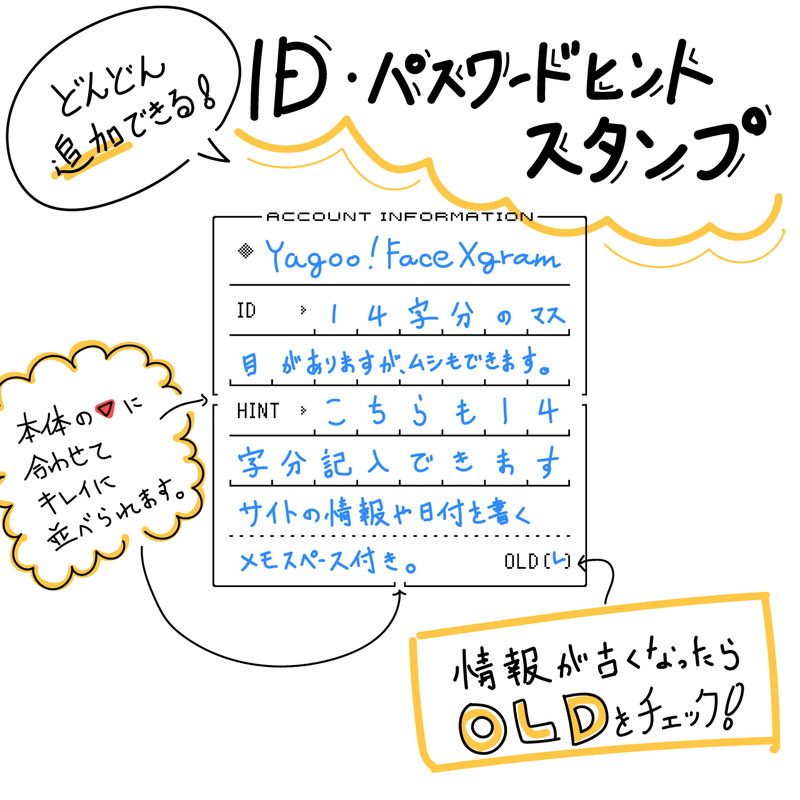 どんどん
追加できる!
ID・パスワードヒント
スタンプ
ACCOUNT INFORMATION
Yagoo! Face Xgram
ID 14字分のマス
目 がありますが、ムシもできます。
HINT こちらも14
字分記入できます
サイトの情報や日付を書く
メモスペース付き。 OLD(レ)
本体の▼に
合わせて
キレイに
並べられます。
情報が古くなったら
OLDをチェック!